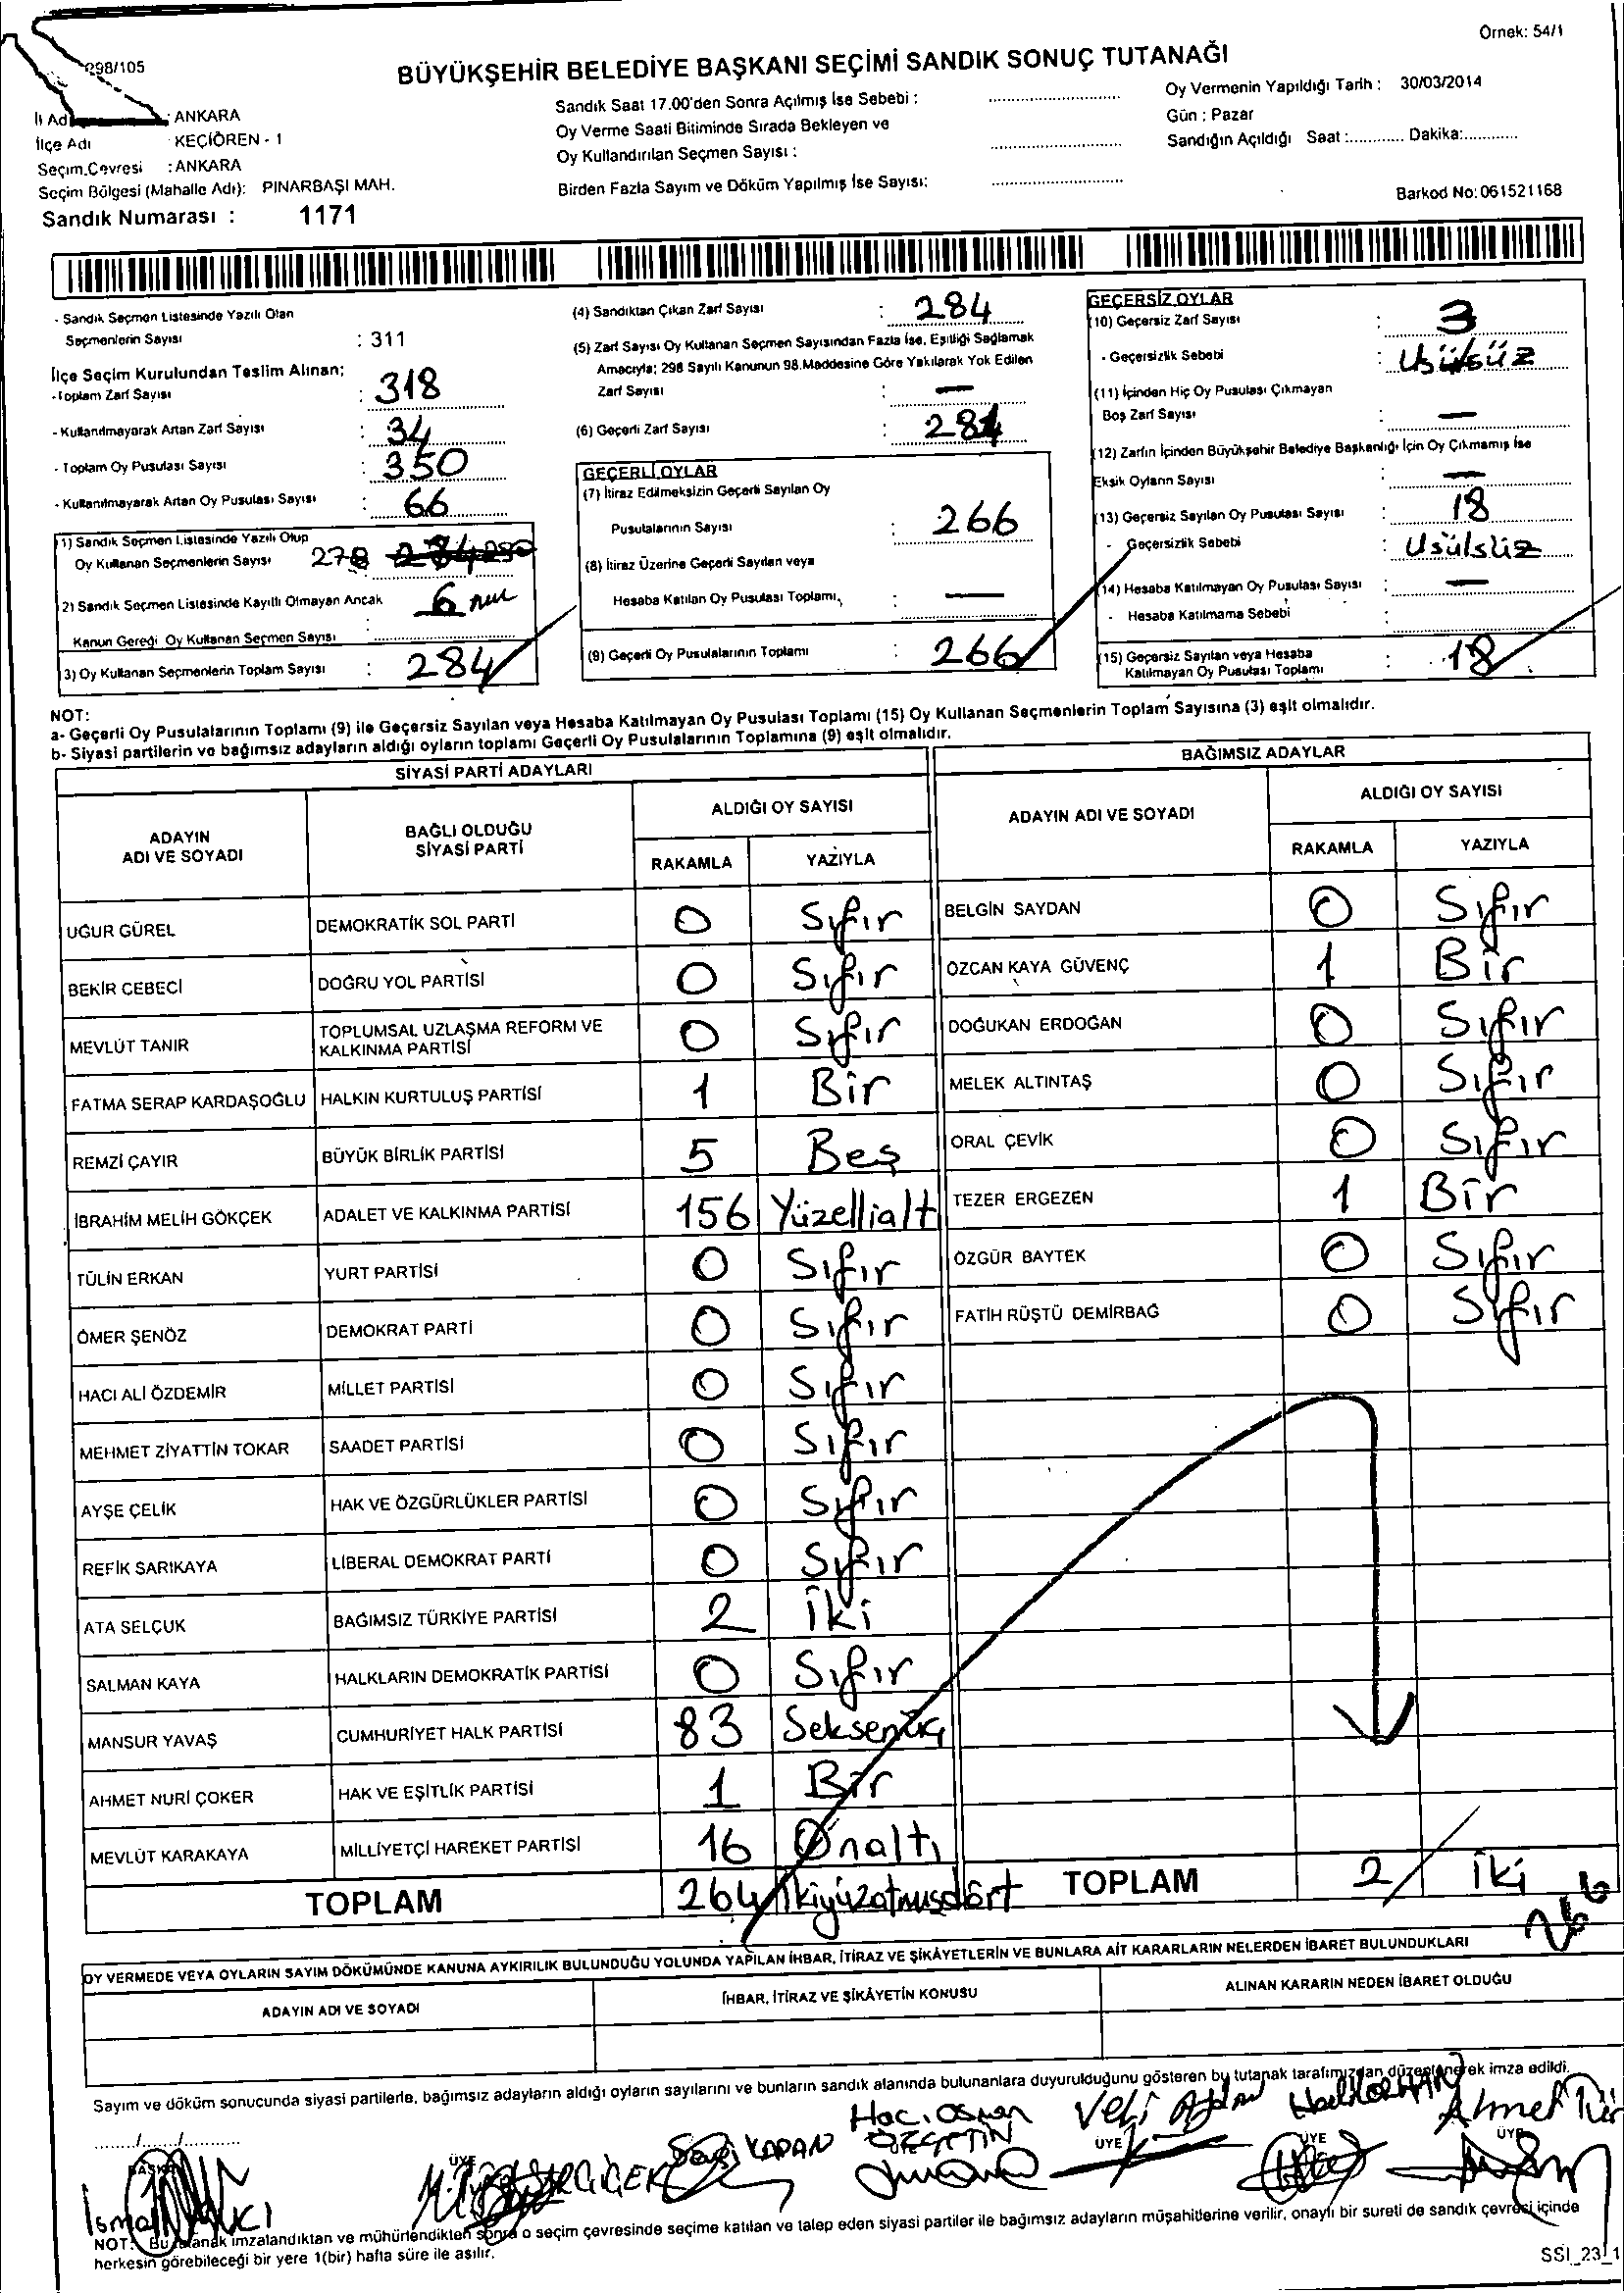 Örnek: 54/1
298/105
BÜYÜKŞEHİR BELEDİYE BAŞKANI SEÇİMİ SANDIK SONUÇ TUTANAĞI
İl Adı : ANKARA
İlçe Adı KEÇİÖREN - 1
Seçim Çevresi : ANKARA
Seçim Bölgesi (Mahalle Adı): PINARBAŞI MAH.
Sandık Numarası : 1171
Sandık Saat 17.00'den Sonra Açılmış İse Sebebi :
Oy Verme Saati Bitiminde Sırada Bekleyen ve
Oy Kullandırılan Seçmen Sayısı :
Birden Fazla Sayım ve Döküm Yapılmış İse Sayısı:
Oy Vermenin Yapıldığı Tarih : 30/03/2014
Gün : Pazar
Sandığın Açıldığı Saat :............ Dakika:............
Barkod No: 061521168
- Sandık Seçmen Listesinde Yazılı Olan
Seçmenlerin Sayısı : 311
İlçe Seçim Kurulundan Teslim Alınan;
- Toplam Zarf Sayısı : 318
- Kullanılmayarak Artan Zarf Sayısı : 34
- Toplam Oy Pusulası Sayısı : 350
- Kullanılmayarak Artan Oy Pusulası Sayısı : 66
1) Sandık Seçmen Listesinde Yazılı Olup
Oy Kullanan Seçmenlerin Sayısı 278
2) Sandık Seçmen Listesinde Kayıtlı Olmayan Ancak
Kanun Gereği Oy Kullanan Seçmen Sayısı : 6
3) Oy Kullanan Seçmenlerin Toplam Sayısı : 284
(4) Sandıktan Çıkan Zarf Sayısı : 284
(5) Zarf Sayısı Oy Kullanan Seçmen Sayısından Fazla İse, Eşitliği Sağlamak
Amacıyla; 298 Sayılı Kanunun 98.Maddesine Göre Yakılarak Yok Edilen
Zarf Sayısı : —
(6) Geçerli Zarf Sayısı : 281
GEÇERLİ OYLAR
(7) İtiraz Edilmeksizin Geçerli Sayılan Oy
Pusulalarının Sayısı : 266
(8) İtiraz Üzerine Geçerli Sayılan veya
Hesaba Katılan Oy Pusulası Toplamı, : —
(9) Geçerli Oy Pusulalarının Toplamı : 266
GEÇERSİZ OYLAR
(10) Geçersiz Zarf Sayısı : 3
- Geçersizlik Sebebi : Usülsüz
(11) İçinden Hiç Oy Pusulası Çıkmayan
Boş Zarf Sayısı : —
(12) Zarfın İçinden Büyükşehir Belediye Başkanlığı İçin Oy Çıkmamış İse
Eksik Oyların Sayısı : —
(13) Geçersiz Sayılan Oy Pusulası Sayısı : 18
- Geçersizlik Sebebi : Usülsüz
(14) Hesaba Katılmayan Oy Pusulası Sayısı : —
- Hesaba Katılmama Sebebi :
(15) Geçersiz Sayılan veya Hesaba
Katılmayan Oy Pusulası Toplamı : 18
NOT:
a- Geçerli Oy Pusulalarının Toplamı (9) ile Geçersiz Sayılan veya Hesaba Katılmayan Oy Pusulası Toplamı (15) Oy Kullanan Seçmenlerin Toplam Sayısına (3) eşit olmalıdır.
b- Siyasi partilerin ve bağımsız adayların aldığı oyların toplamı Geçerli Oy Pusulalarının Toplamına (9) eşit olmalıdır.
SİYASİ PARTİ ADAYLARI
ADAYIN ADI VE SOYADI
BAĞLI OLDUĞU SİYASİ PARTİ
ALDIĞI OY SAYISI
RAKAMLA YAZIYLA
UĞUR GÜREL DEMOKRATİK SOL PARTİ 0 Sıfır
BEKİR CEBECİ DOĞRU YOL PARTİSİ 0 Sıfır
MEVLÜT TANIR TOPLUMSAL UZLAŞMA REFORM VE KALKINMA PARTİSİ 0 Sıfır
FATMA SERAP KARDAŞOĞLU HALKIN KURTULUŞ PARTİSİ 1 Bir
REMZİ ÇAYIR BÜYÜK BİRLİK PARTİSİ 5 Beş
İBRAHİM MELİH GÖKÇEK ADALET VE KALKINMA PARTİSİ 156 Yüzellialt
TÜLİN ERKAN YURT PARTİSİ 0 Sıfır
ÖMER ŞENÖZ DEMOKRAT PARTİ 0 Sıfır
HACI ALİ ÖZDEMİR MİLLET PARTİSİ 0 Sıfır
MEHMET ZİYATTİN TOKAR SAADET PARTİSİ 0 Sıfır
AYŞE ÇELİK HAK VE ÖZGÜRLÜKLER PARTİSİ 0 Sıfır
REFİK SARIKAYA LİBERAL DEMOKRAT PARTİ 0 Sıfır
ATA SELÇUK BAĞIMSIZ TÜRKİYE PARTİSİ 2 İki
SALMAN KAYA HALKLARIN DEMOKRATİK PARTİSİ 0 Sıfır
MANSUR YAVAŞ CUMHURİYET HALK PARTİSİ 83 Seksenüç
AHMET NURİ ÇOKER HAK VE EŞİTLİK PARTİSİ 1 Bir
MEVLÜT KARAKAYA MİLLİYETÇİ HAREKET PARTİSİ 16 Onaltı
TOPLAM 264 İkiyüzatmışdört
BAĞIMSIZ ADAYLAR
ADAYIN ADI VE SOYADI
ALDIĞI OY SAYISI
RAKAMLA YAZIYLA
BELGİN SAYDAN 0 Sıfır
ÖZCAN KAYA GÜVENÇ 1 Bir
DOĞUKAN ERDOĞAN 0 Sıfır
MELEK ALTINTAŞ 0 Sıfır
ORAL ÇEVİK 0 Sıfır
TEZER ERGEZEN 1 Bir
ÖZGÜR BAYTEK 0 Sıfır
FATİH RÜŞTÜ DEMİRBAĞ 0 Sıfır
TOPLAM 2 İki
266
OY VERMEDE VEYA OYLARIN SAYIM DÖKÜMÜNDE KANUNA AYKIRILIK BULUNDUĞU YOLUNDA YAPILAN İHBAR, İTİRAZ VE ŞİKÂYETLERİN VE BUNLARA AİT KARARLARIN NELERDEN İBARET BULUNDUKLARI
ADAYIN ADI VE SOYADI İHBAR, İTİRAZ VE ŞİKÂYETİN KONUSU ALINAN KARARIN NEDEN İBARET OLDUĞU
Sayım ve döküm sonucunda siyasi partilerle, bağımsız adayların aldığı oyların sayılarını ve bunların sandık alanında bulunanlara duyurulduğunu gösteren bu tutanak tarafımızdan düzenlenerek imza edildi.
Hacı Osman Veli Ahmet
KAPAN
ÜYE ÜYE ÜYE ÜYE
NOT: Bu tutanak imzalandıktan ve mühürlendikten sonra o seçim çevresinde seçime katılan ve talep eden siyasi partiler ile bağımsız adayların müşahitlerine verilir, onaylı bir sureti de sandık çevresi içinde
herkesin görebileceği bir yere 1(bir) hafta süre ile asılır.
SSİ_23_1